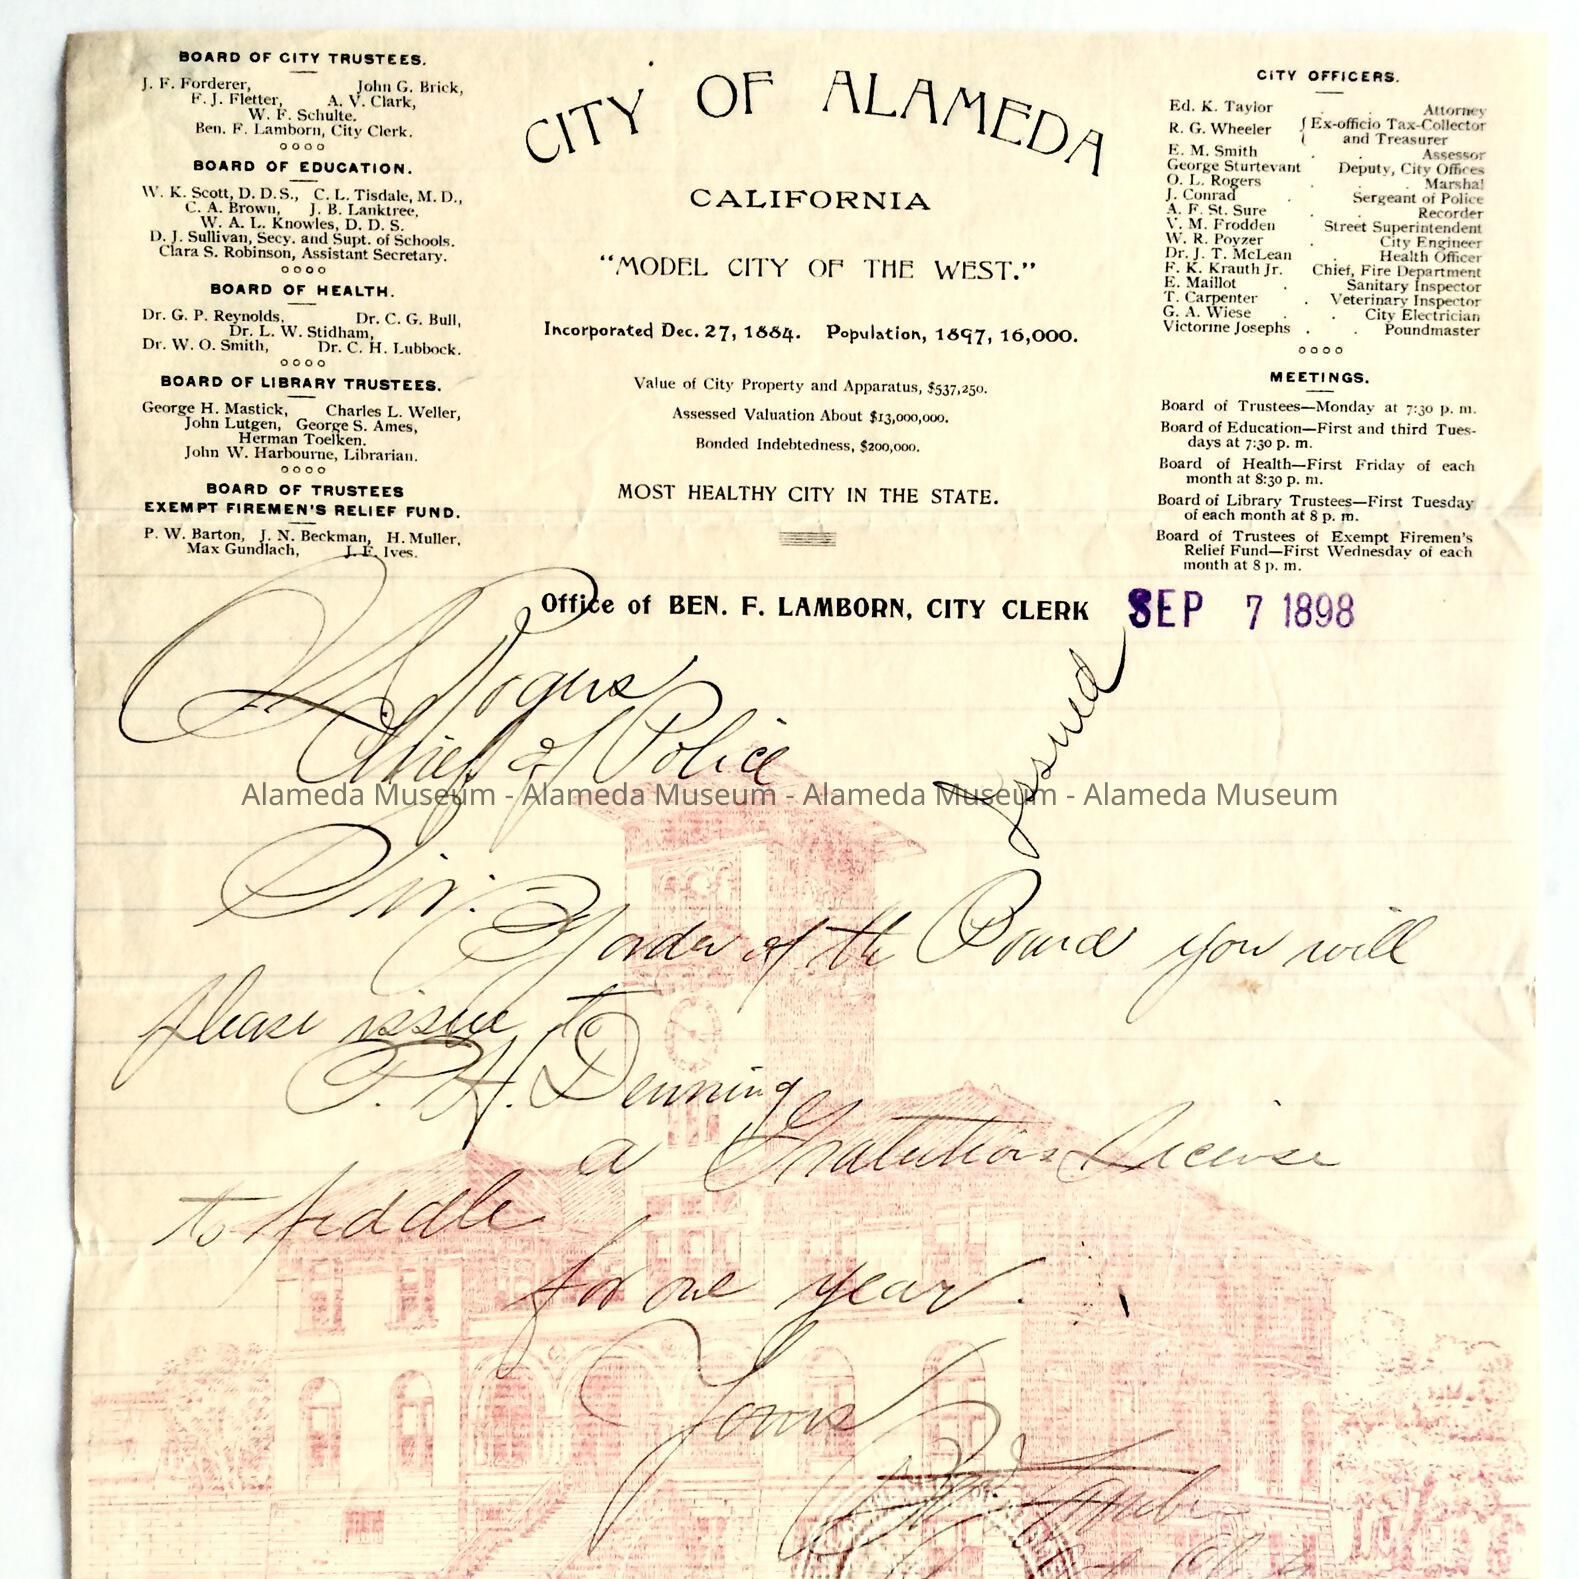 BOARD OF CITY TRUSTEES.
J. F. Forderer, John G. Brick,
F. J. Fletter, A. V. Clark,
W. F. Schulte.
Ben. F. Lamborn, City Clerk.
BOARD OF EDUCATION.
W. K. Scott, D. D. S., C. L. Tisdale, M. D.,
C. A. Brown, J. B. Lanktree,
W. A. L. Knowles, D. D. S.
D. J. Sullivan, Secy. and Supt. of Schools.
Clara S. Robinson, Assistant Secretary.
BOARD OF HEALTH.
Dr. G. P. Reynolds, Dr. C. G. Bull,
Dr. L. W. Stidham,
Dr. W. O. Smith, Dr. C. H. Lubbock.
BOARD OF LIBRARY TRUSTEES.
George H. Mastick, Charles L. Weller,
John Lutgen, George S. Ames,
Herman Toelken.
John W. Harbourne, Librarian.
BOARD OF TRUSTEES
EXEMPT FIREMEN'S RELIEF FUND.
P. W. Barton, J. N. Beckman, H. Muller,
Max Gundlach, J. F. Ives.
CITY OF ALAMEDA
CALIFORNIA
"MODEL CITY OF THE WEST."
Incorporated Dec. 27, 1884. Population, 1897, 16,000.
Value of City Property and Apparatus, $537,250.
Assessed Valuation About $13,000,000.
Bonded Indebtedness, $200,000.
MOST HEALTHY CITY IN THE STATE.
CITY OFFICERS.
Ed. K. Taylor . . Attorney
R. G. Wheeler { Ex-officio Tax-Collector
and Treasurer
E. M. Smith . . Assessor
George Sturtevant Deputy, City Offices
O. L. Rogers . . Marshal
J. Conrad . Sergeant of Police
A. F. St. Sure . . Recorder
V. M. Frodden Street Superintendent
W. R. Poyzer . City Engineer
Dr. J. T. McLean . Health Officer
F. K. Krauth Jr. Chief, Fire Department
E. Maillot . Sanitary Inspector
T. Carpenter . Veterinary Inspector
G. A. Wiese . . City Electrician
Victorine Josephs . . Poundmaster
MEETINGS.
Board of Trustees—Monday at 7:30 p. m.
Board of Education—First and third Tues-
days at 7:30 p. m.
Board of Health—First Friday of each
month at 8:30 p. m.
Board of Library Trustees—First Tuesday
of each month at 8 p. m.
Board of Trustees of Exempt Firemen's
Relief Fund—First Wednesday of each
month at 8 p. m.
Office of BEN. F. LAMBORN, CITY CLERK SEP 7 1898
Rogers
Chief of Police
Issued
Alameda Museum - Alameda Museum - Alameda Museum - Alameda Museum
Sir:
By order of the Board you will
please issue to
P. H. Denning
a Gratutious License
to peddle
for one year.
Yours